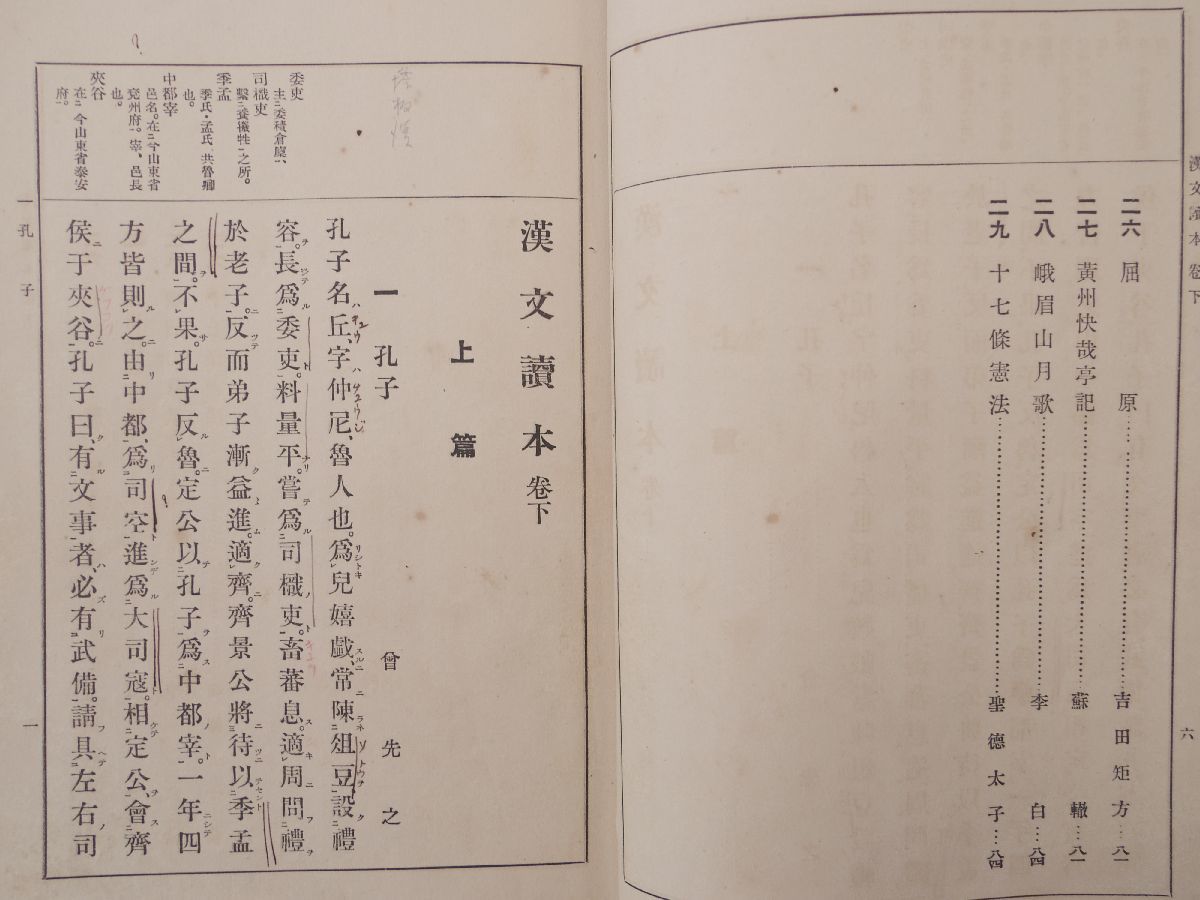 漢文讀本 卷下
六
二六 屈原……吉田矩方…八一
二七 黃州快哉亭記……蘇轍…八一
二八 峨眉山月歌……李白…八四
二九 十七條憲法……聖德太子…八四
委吏
主委積倉廩、
司樴吏
繫養犧牲之所。
季孟
季氏・孟氏、共魯卿
也。
中都宰
邑名。在今山東省
兗州府。宰、邑長
也。
夾谷
在今山東省泰安
府。
漢文讀本 卷下
上篇
一 孔子 曾先之
孔子名丘、字仲尼、魯人也。爲兒嬉戲、常陳俎豆設禮
容。長爲委吏。料量平。嘗爲司樴吏。畜蕃息。適周問禮
於老子。反而弟子漸益進。適齊。齊景公將待以季孟
之間。不果。孔子反魯。定公以孔子爲中都宰。一年四
方皆則之。由中都、爲司空、進爲大司寇。相定公、會齊
侯于夾谷。孔子曰、有文事者、必有武備。請具左右司
一 孔子
一